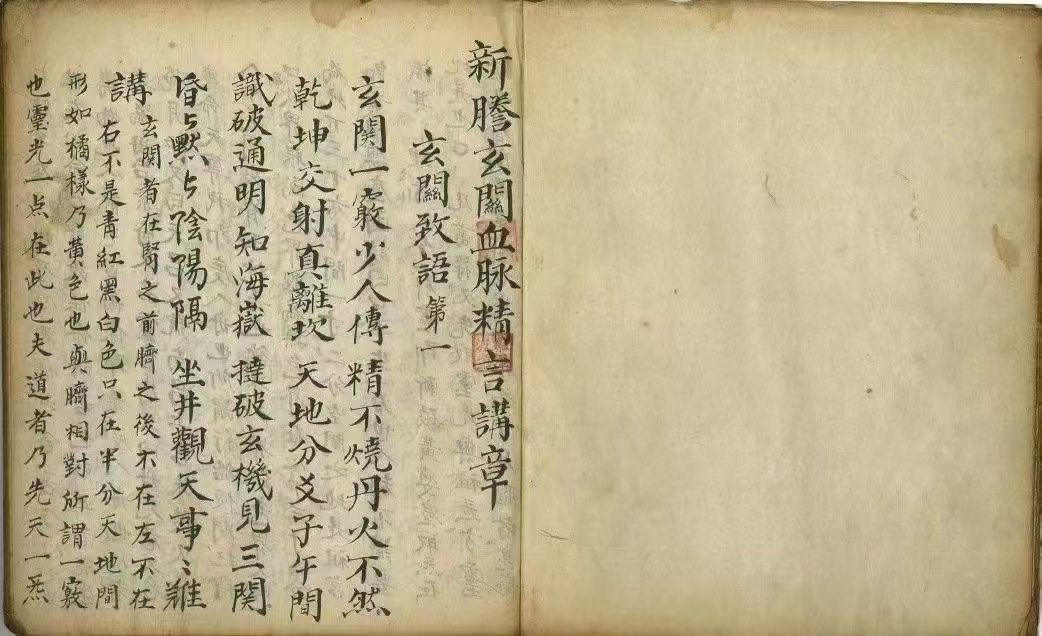 新謄玄關血脉精言講章
玄關致語 第一
玄関一竅少人傳 精不燒丹火不然
乾坤交射真離坎 天地分爻子午間
識破通明知海嶽 撻破玄機見三関
昏々黙々陰陽隔 坐井觀天事〻難
講 玄関者在腎之前臍之後不在左不在
右不是青紅黑白色只在半分天地間
形如橘樣乃黄色也與臍相對所謂一竅
也靈光一点在此也夫道者乃先天一炁